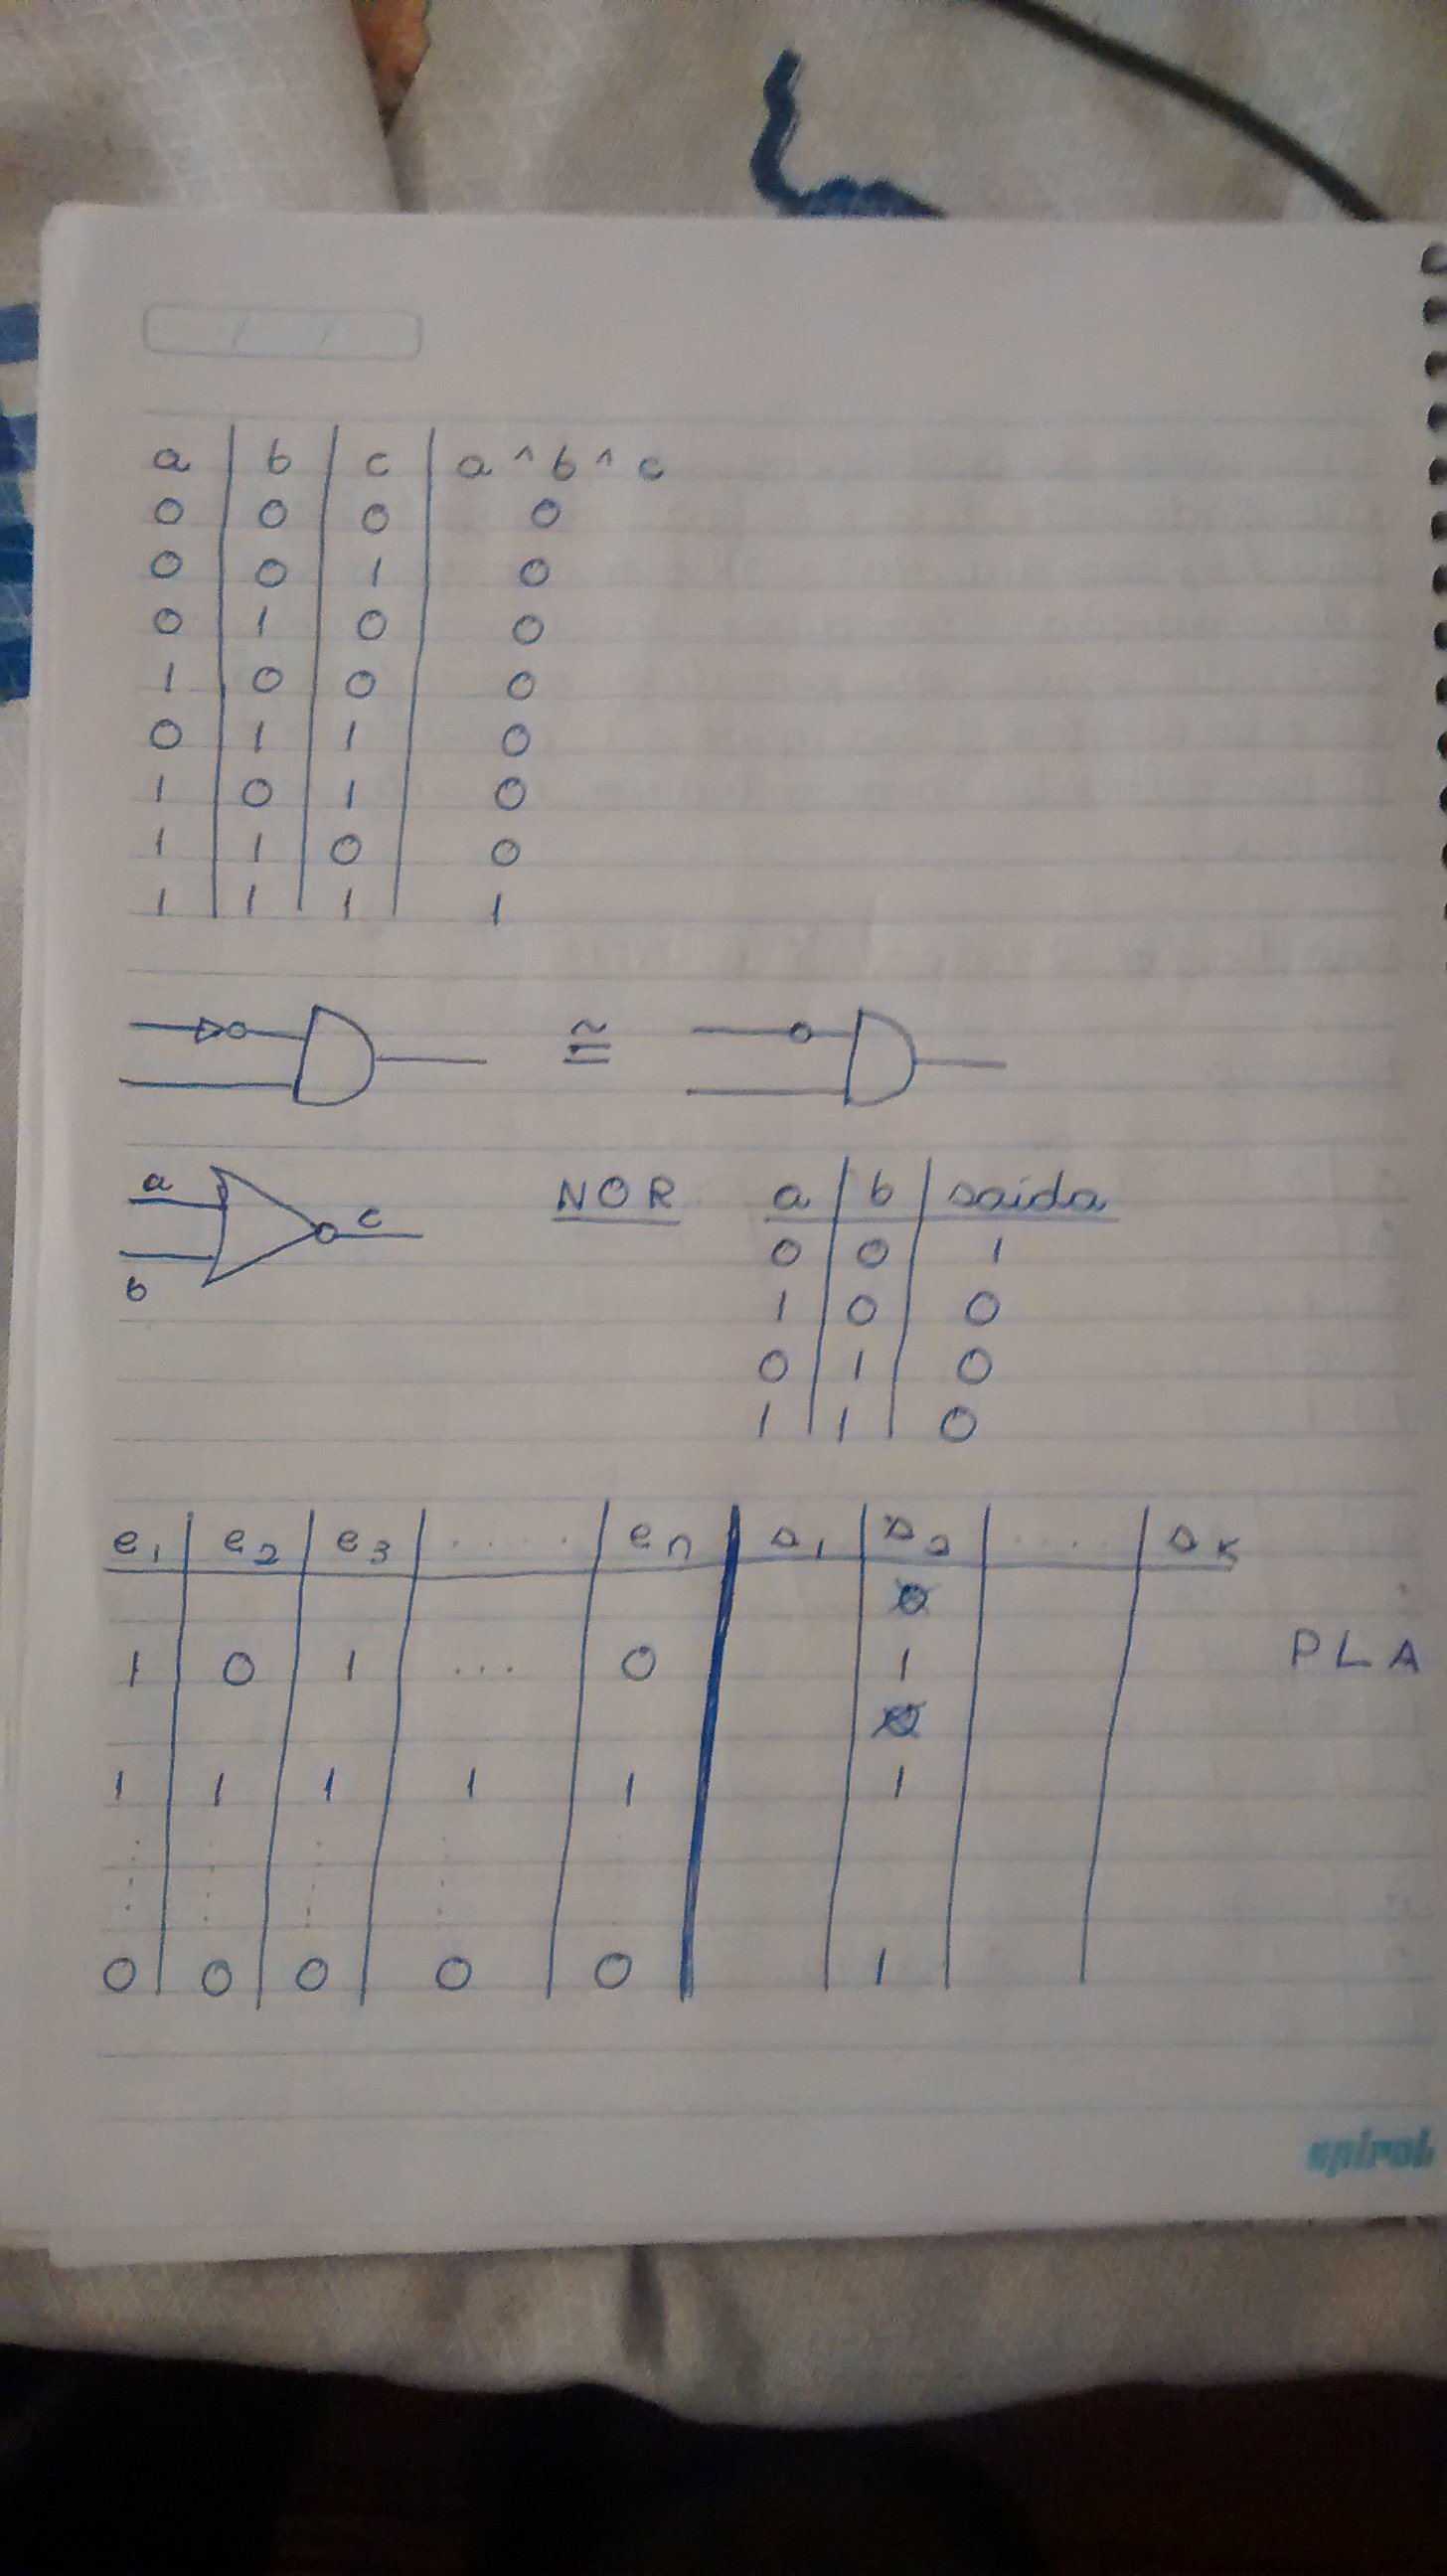 / /
a | b | c | a ^ b ^ c
0 | 0 | 0 | 0
0 | 0 | 1 | 0
0 | 1 | 0 | 0
1 | 0 | 0 | 0
0 | 1 | 1 | 0
1 | 0 | 1 | 0
1 | 1 | 0 | 0
1 | 1 | 1 | 1
≅
a
c
b
NOR
a | b | saída
0 | 0 | 1
1 | 0 | 0
0 | 1 | 0
1 | 1 | 0
e1 | e2 | e3 | ..... | en | s1 | s2 | .... | sk
1 | 0 | 1 | ... | 0 | | 1
PLA
1 | 1 | 1 | 1 | 1 | | 1
0 | 0 | 0 | 0 | 0 | | 1
spiral